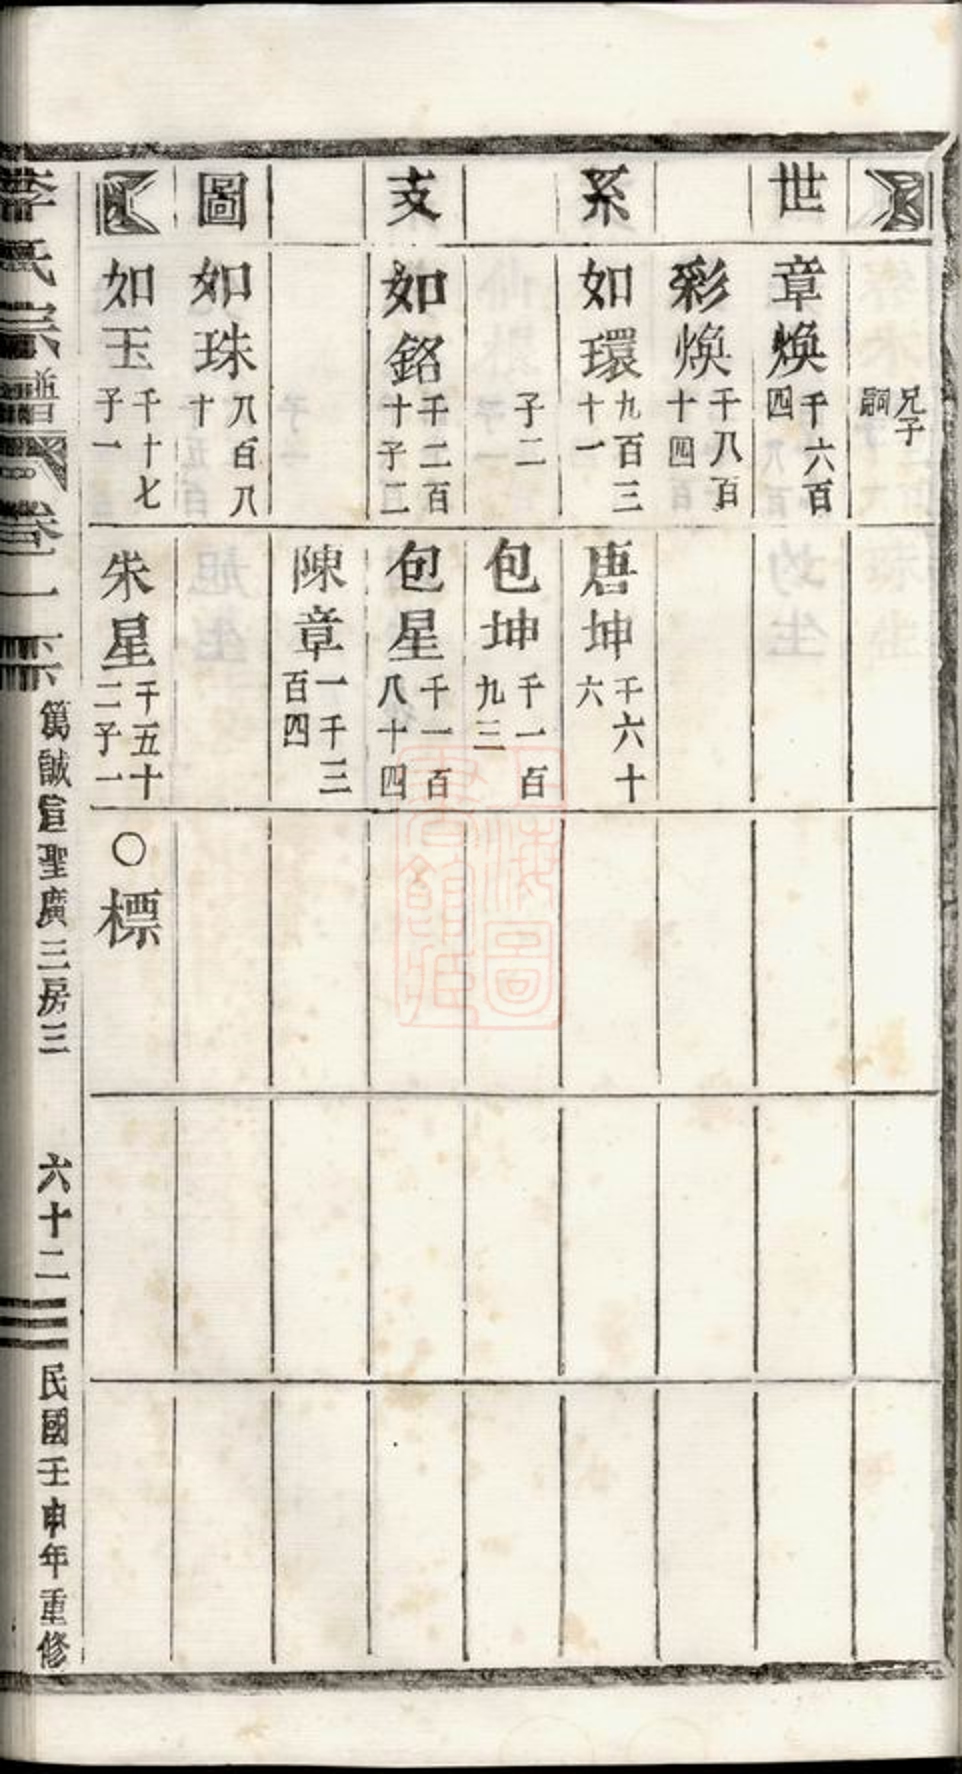 世系支圖
兄子嗣
章煥 千六百四
彩煥 千八百十四
如環 九百三十一
子二
如銘 千二百十子二
如珠 八百八十
如玉 千十七子一
唐坤 千六十六
包坤 千一百九三
包星 千一百八十四
陳章 一千三百四
朱星 千五十二子一
○標
李氏宗譜 卷一下 篤誠宣聖廣三房三 六十二 民國壬申年重修
上海圖書館藏